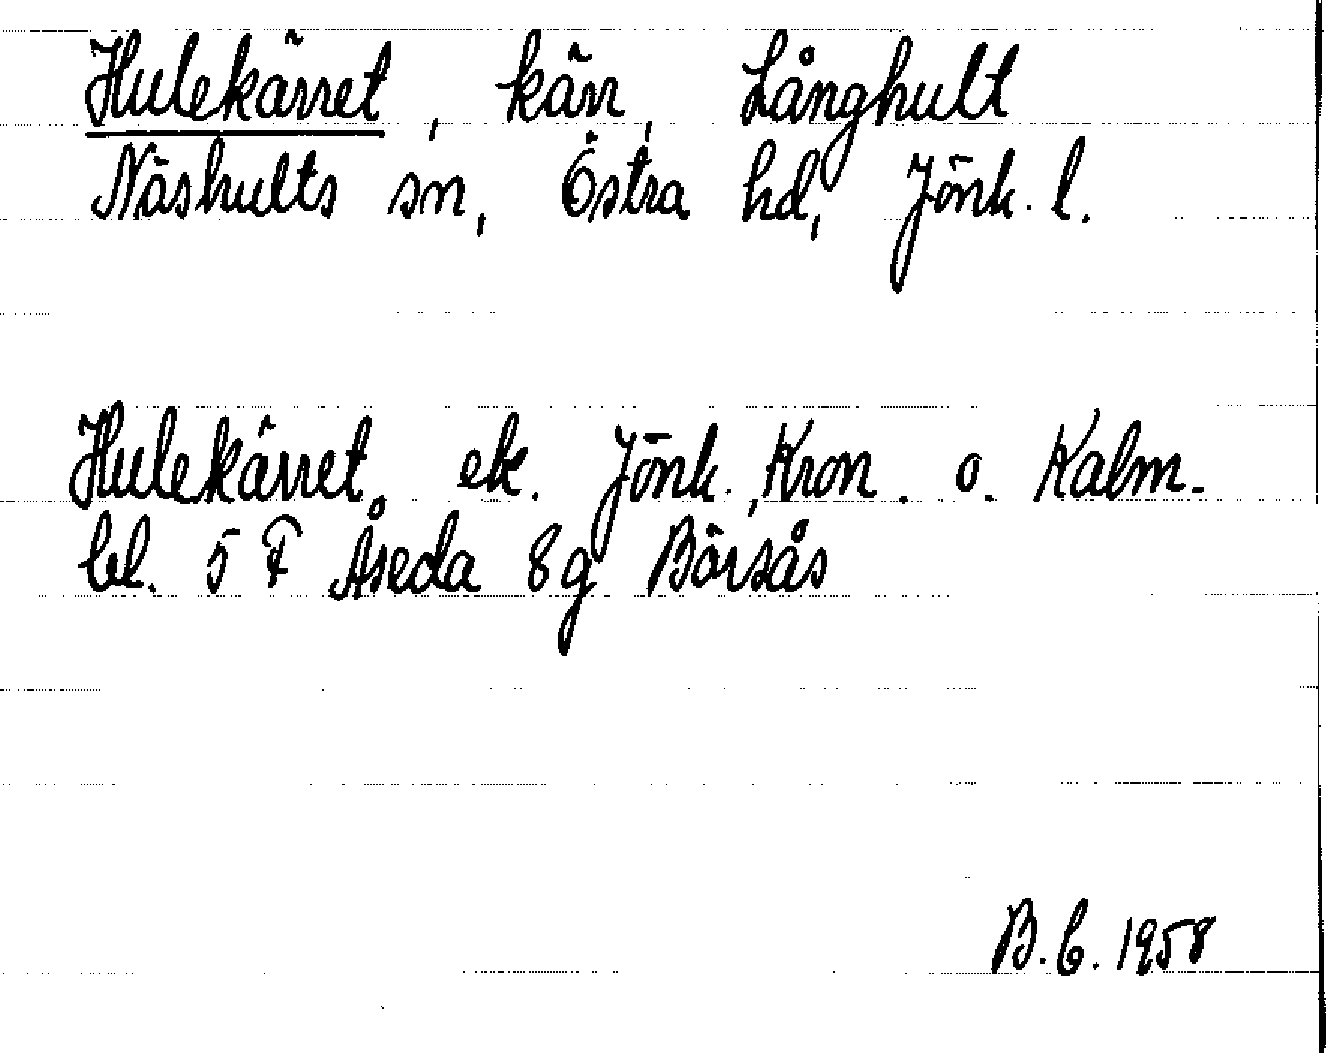 Hulekärret, kärr, Långhult
Näshults sn, Östra hd, Jönk. l.
Hulekärret, ek. Jönk., Kron. o. Kalm.
bl. 5 F Åseda 8g Börsås
B. C. 1958